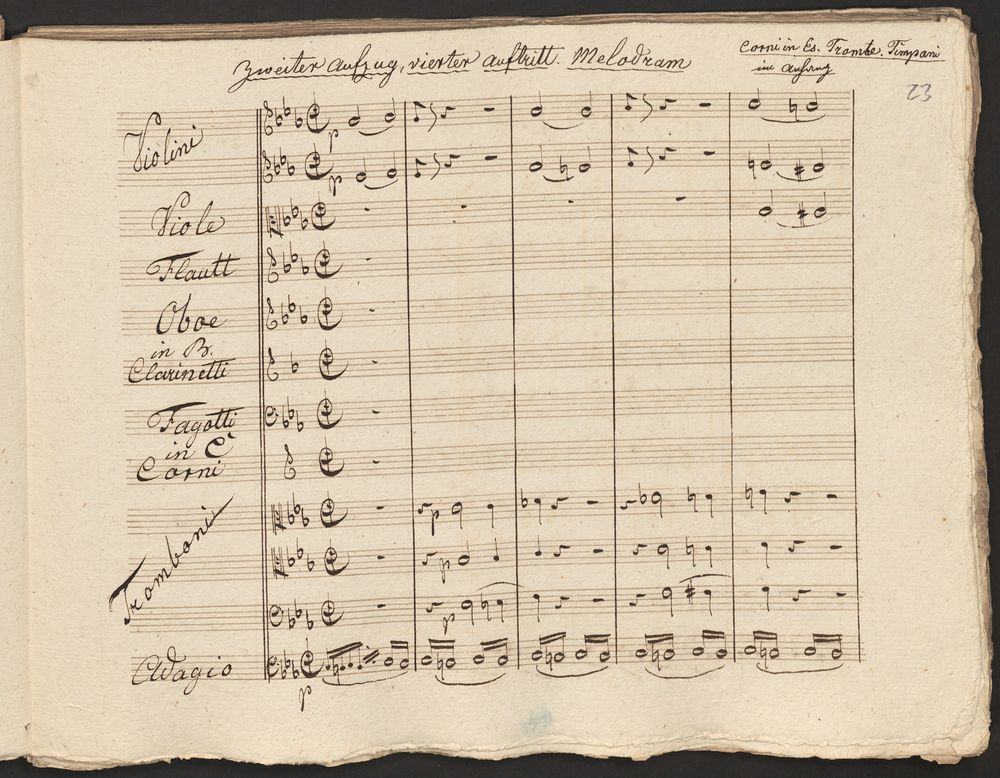 Zweiter Aufzug, vierter Auftritt. Melodram
Corni in Es. Trombe. Timpani
im Anhang
23
Violini
Viole
Flauti
Oboe
in B.
Clarinetti
Fagotti
in C
Corni
Tromboni
Adagio
p
p
p
p
p
p